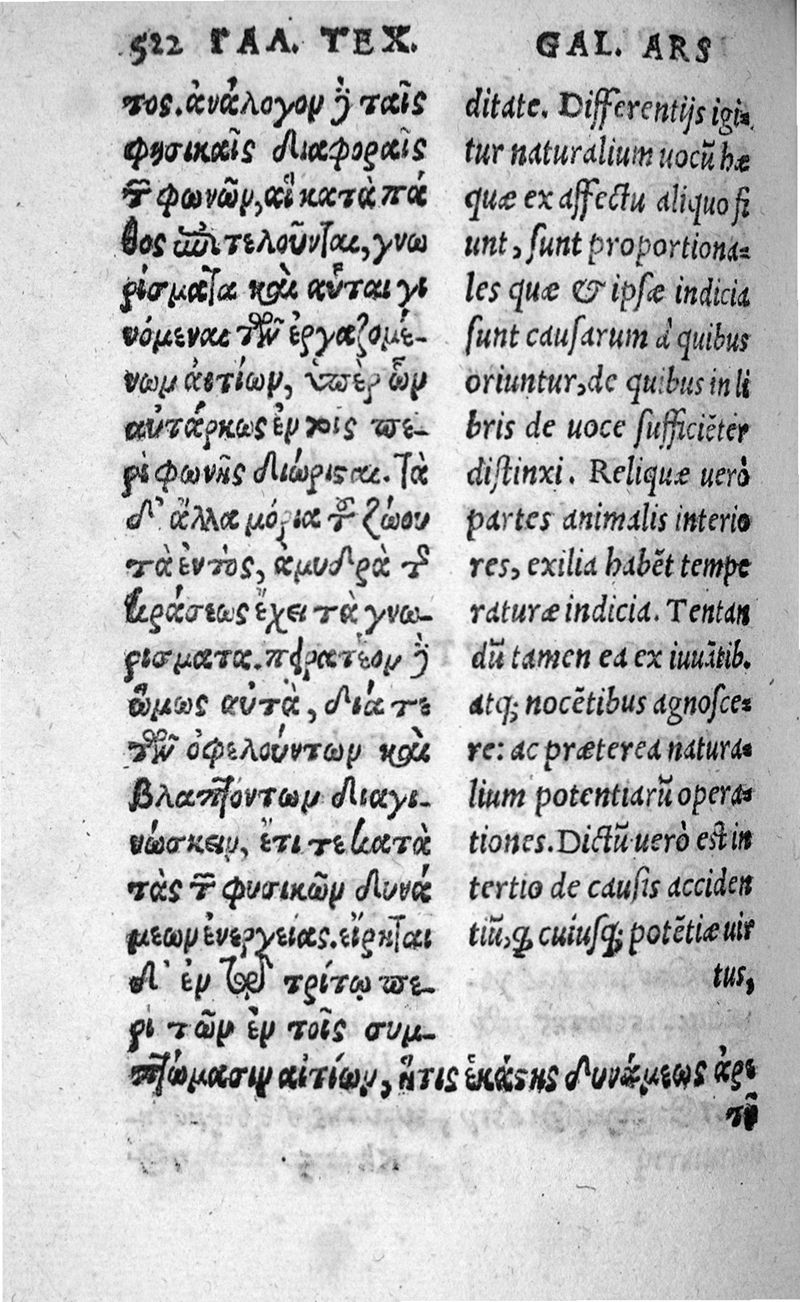 522 ΓΑΛ. ΤΕΧ.
τος. ἀνάλογον γὰρ ταῖς
φυσικαῖς διαφοραῖς
τῶν φωνῶν, αἱ κατὰ πά
θος ἐπιτελοῦνται, γνω
ρίσματα καὶ αὗται γι
νόμεναι τῶν ἐργαζομέ-
νων αἰτίων, ὑπὲρ ὧν
αὐτάρκως ἐν τοῖς πε-
ρὶ φωνῆς διώρισται. Τὰ
δ' ἄλλα μόρια τοῦ ζώου
τὰ ἐντὸς, ἀμυδρὰ τῆς
κράσεως ἔχει τὰ γνω-
ρίσματα. πειρατέον δὲ
ὅμως αὐτὰ, διά τε
τῶν ὀφελούντων καὶ
βλαπτόντων διαγι-
νώσκειν, ἔτι τε κατὰ
τὰς τῶν φυσικῶν δυνά
μεων ἐνεργείας. εἴρηται
δ' ἐν τῷ τρίτῳ πε-
ρὶ τῶν ἐν τοῖς συμ-
πτώμασιν αἰτίων, ἥτις ἑκάστης δυνάμεως ἀρε
τὴ
GAL. ARS
ditate. Differentijs igi-
tur naturalium uocũ hæ
quæ ex affectu aliquo fi
unt, ſunt proportiona-
les quæ & ipſæ indicia
ſunt cauſarum à quibus
oriuntur, de quibus in li
bris de uoce ſufficiẽter
diſtinxi. Reliquæ uerò
partes animalis interio
res, exilia habẽt tempe
raturæ indicia. Tentan
dũ tamen ea ex iuuãtib.
atq; nocẽtibus agnoſce-
re: ac præterea natura-
lium potentiarũ opera-
tiones. Dictũ uerò eſt in
tertio de cauſis acciden
tiũ, q̃ cuiuſq; potẽtiæ uir
tus,